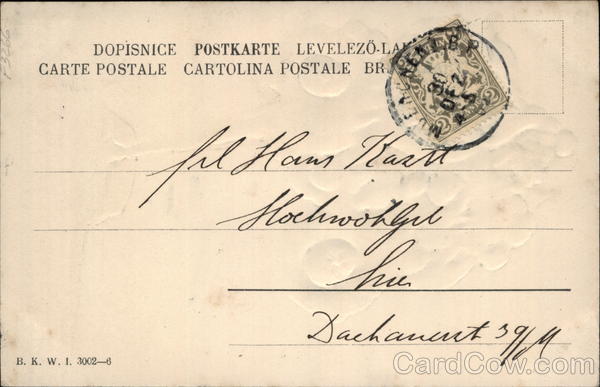 DOPISNICE POSTKARTE LEVELEZŐ-LA
CARTE POSTALE CARTOLINA POSTALE BR
30 DEZ
2 2
Hans Kastl
Hochwohlgb
hier
Dachauerst
B. K. W. I. 3002—6
CardCow.com